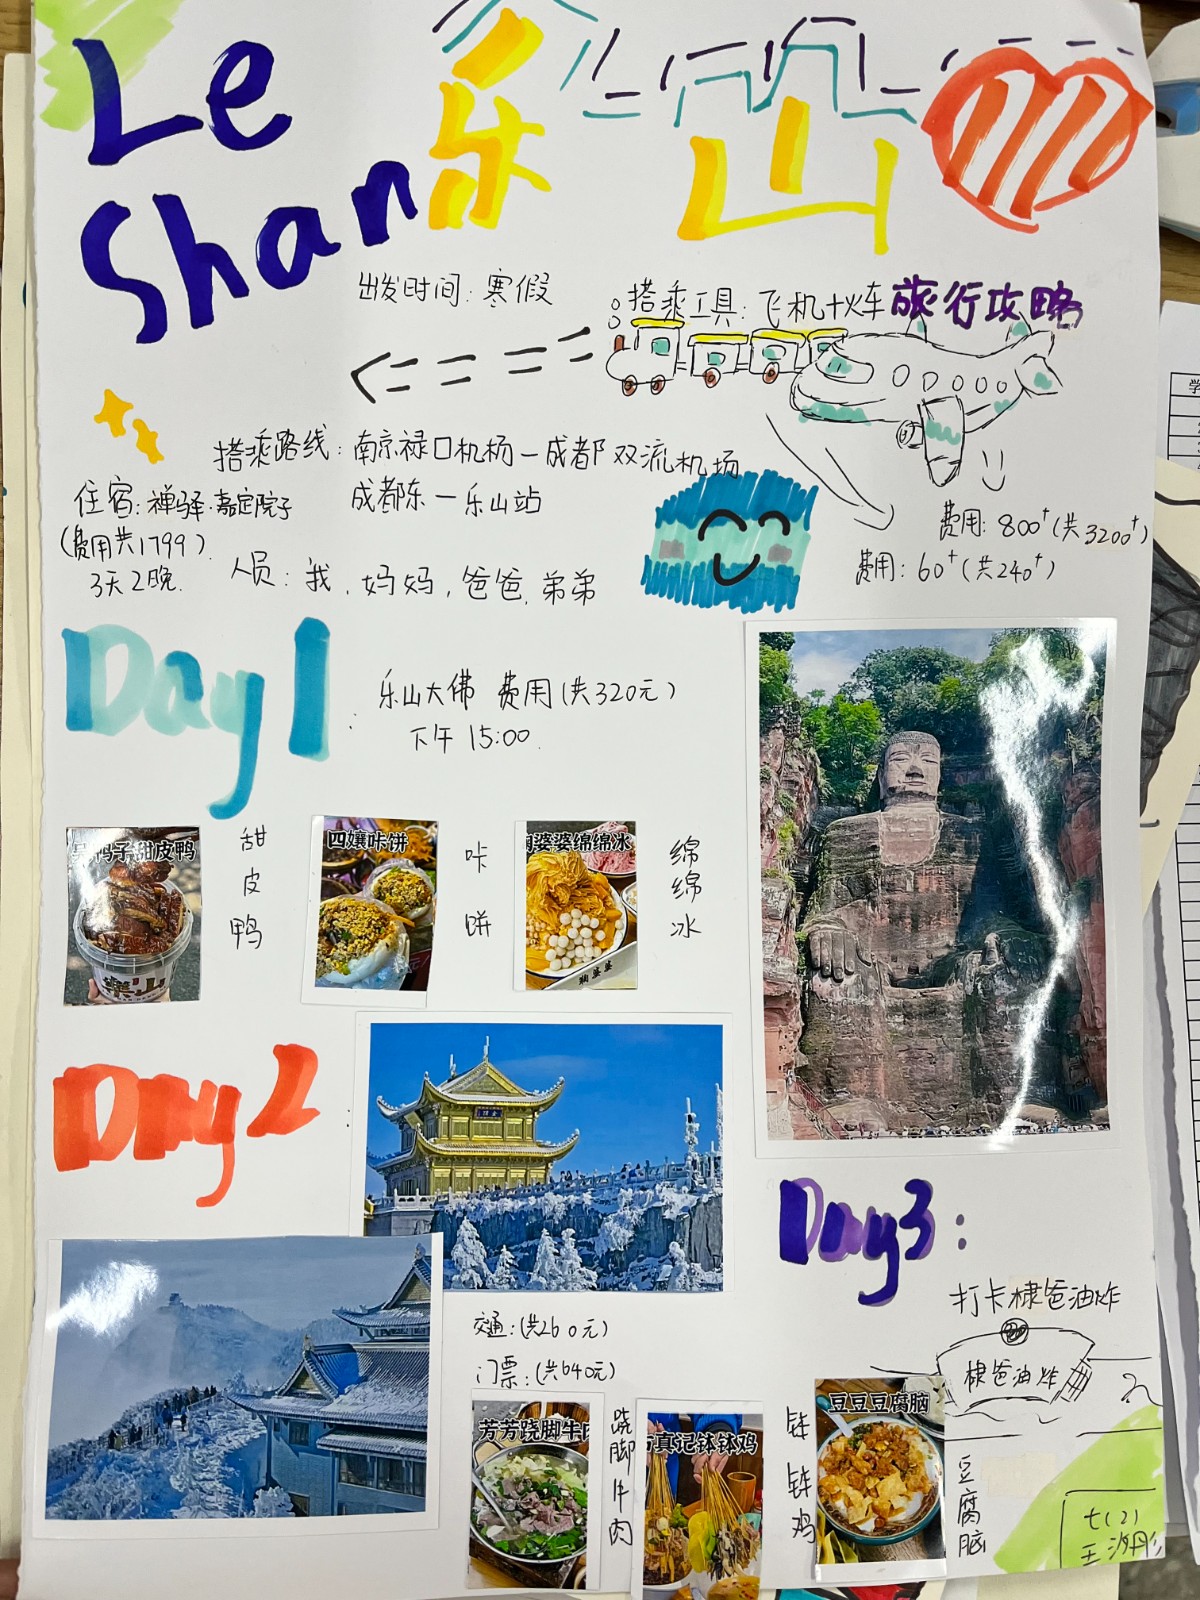 Le
Shan
乐山
旅行攻略
出发时间：寒假
搭乘工具：飞机+火车
搭乘路线：南京禄口机场—成都双流机场
成都东—乐山站
住宿：禅驿·嘉定院子
(费用共1799)
3天2晚
人员：我，妈妈，爸爸，弟弟
费用：800+(共3200+)
费用：60+(共240+)
Day1
乐山大佛 费用(共320元)
下午15:00
鸭子甜皮鸭
乐山
甜皮鸭
四孃咔饼
咔饼
婆婆绵绵冰
绵绵冰
Day2
交通：(共260元)
门票：(共640元)
芳芳跷脚牛肉
跷脚牛肉
真记钵钵鸡
钵钵鸡
Day3：
打卡棣爸油炸
棣爸油炸
豆豆豆腐脑
豆腐脑
七(2)